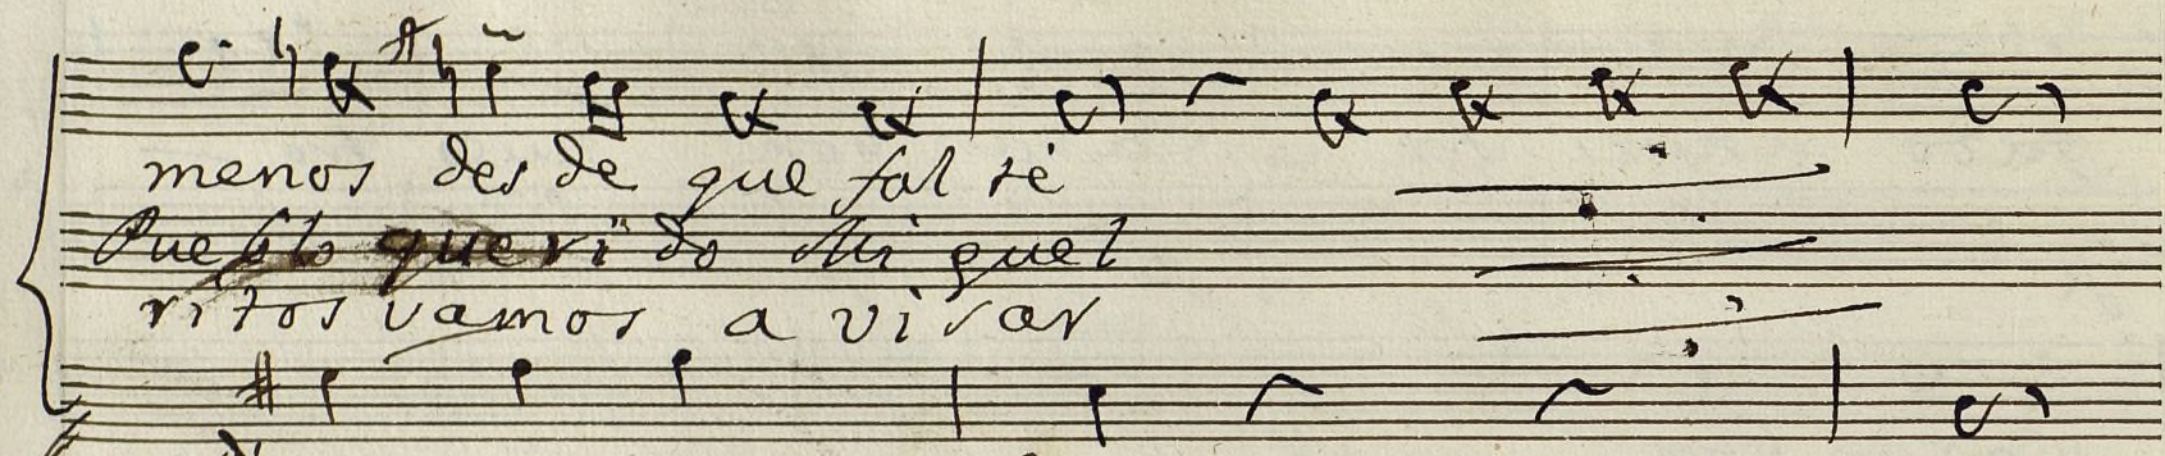 menos des de que fal té
Pueblo queri do Mi guel
ritos vamos a visar